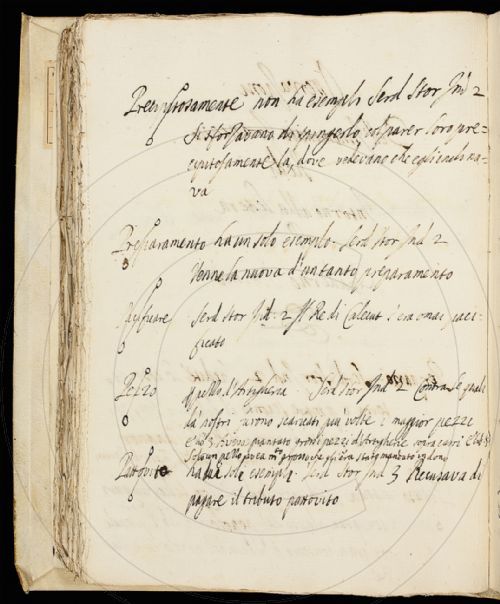 Precipitosamente non ha esempli Serd Stor Ind 2
si sforzavano di spingerlo, col parer loro pre-
cipitosamente là, dove vedevano che egli inchina-
va
Preparamento ha un solo esemplo. Serd Stor Ind 2
Venne la nuova d'un tanto preparamento
Pacificare Serd Stor Ind. 2 Il Re di Calecut s'era omai paci-
ficato
Pezzo pezzo d'Artiglieria Serd Stor Ind 2 Contra le quali
da nostri furono scaricati più volte i maggior pezzi
piantato pezzi d'Artiglierie sopra carri
Solo un pezzo che gli era stato mandato in dono
Pattovito ha un solo esemplo. Serd Stor Ind 3 Recusava di
pagare il tributo pattovito